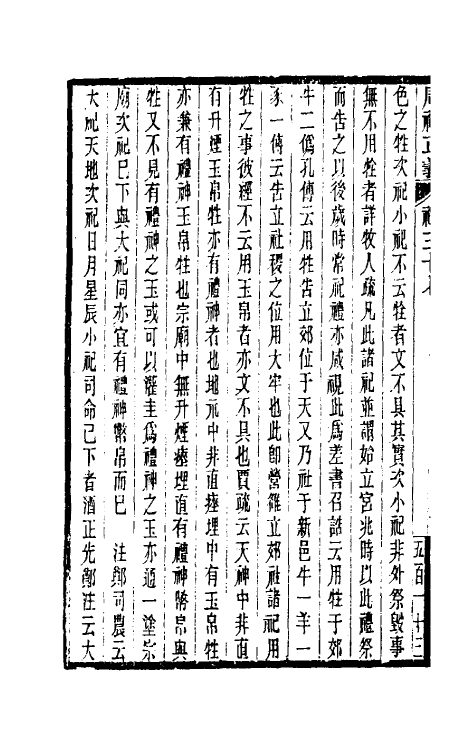 周禮正義 禮三十七
五百一十三
色之牲次祀小祀不云牲者文不具其實次小祀非外祭毀事
無不用牲者詳牧人疏凡此諸祀並謂始立宮兆時以此禮祭
而告之以後歲時常祀禮亦咸視此為差書召誥云用牲于郊
牛二僞孔傳云用牲告立郊位于天又乃社于新邑牛一羊一
豕一傳云告立社稷之位用大牢也此卽營雒立郊社諸祀用
牲之事彼經不云用玉帛者亦文不具也賈疏云天神中非直
有升煙玉帛牲亦有禮神者也地示中非直瘞埋中有玉帛牲
亦兼有禮神玉帛牲也宗廟中無升煙瘞埋直有禮神幣帛與
牲又不見有禮神之玉或可以灌圭爲禮神之玉亦通一塗宗
廟次祀已下與大祀同亦宜有禮神幣帛而已 注鄭司農云
大祀天地次祀日月星辰小祀司命已下者酒正先鄭注云大